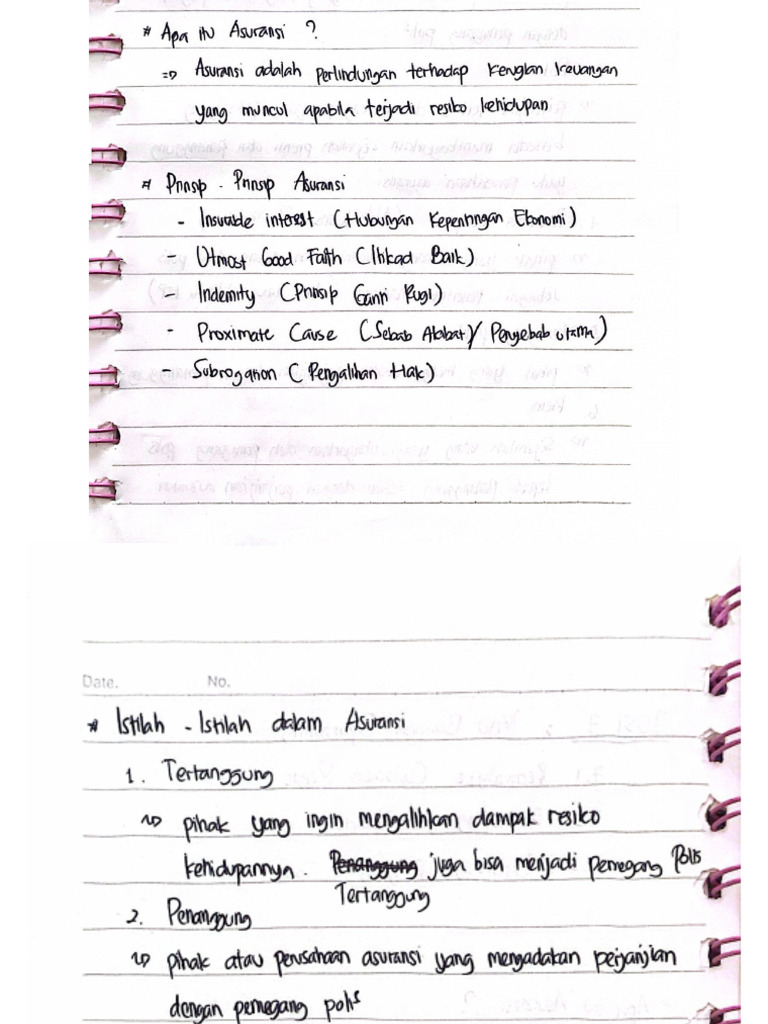 * Apa itu Asuransi ?
=> Asuransi adalah perlindungan terhadap kerugian keuangan
yang muncul apabila terjadi resiko kehidupan
* Prinsip - Prinsip Asuransi
- Insurable interest (Hubungan Kepentingan Ekonomi)
- Utmost Good Faith (Itikad Baik)
- Indemity (Prinsip Ganti Rugi)
- Proximate Cause (Sebab Akibat)/ Penyebab utama)
- Subrogation (Pengalihan Hak)
Date. No.
* Istilah - Istilah dalam Asuransi
1. Tertanggung
~> pihak yang ingin mengalihkan dampak resiko
kehidupannya. Penanggung juga bisa menjadi pemegang Polis
Tertanggung
2. Penanggung
~> pihak atau perusahaan asuransi yang mengadakan perjanjian
dengan pemegang polis